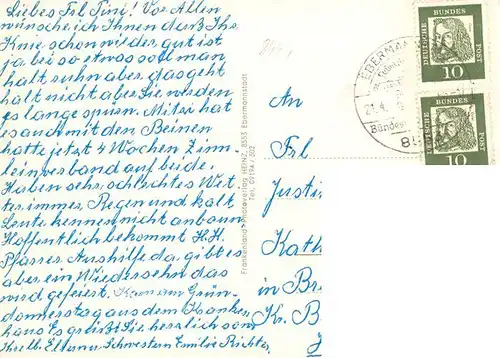 Liebes Frl Tini! Vor Allem
wünsche ich Ihnen daß Ihr
Knie schon wieder gut ist
ja bei so etwas soll man
halt ruhn aber das geht
halt nicht aber Sie werden
es lange spüren. Mitzi hat
es auch mit den Beinen
hatte jetzt 4 Wochen Zink-
leimverband auf beide.
Haben sehr schlechtes Wet-
ter immer Regen und kalt
Leute kennen nicht anbaun
Hoffentlich bekommt H.H.
Pfarrer Aushilfe da, gibt es
aber ein Wiedersehn das
wird gefeiert. Kam am Grün-
donnerstag aus dem Kranken
haus Es grüßt Sie herzlich von
Eltern Schwestern Emilie Richter
Frankenland-Photoverlag HEINZ, 8553 Ebermannstadt
Tel. 09194/802
An
Frl
Justi
Kath
in Br
K. B
DEUTSCHE BUNDESPOST
10
DEUTSCHE BUNDESPOST
10
EBERMA
21.4.